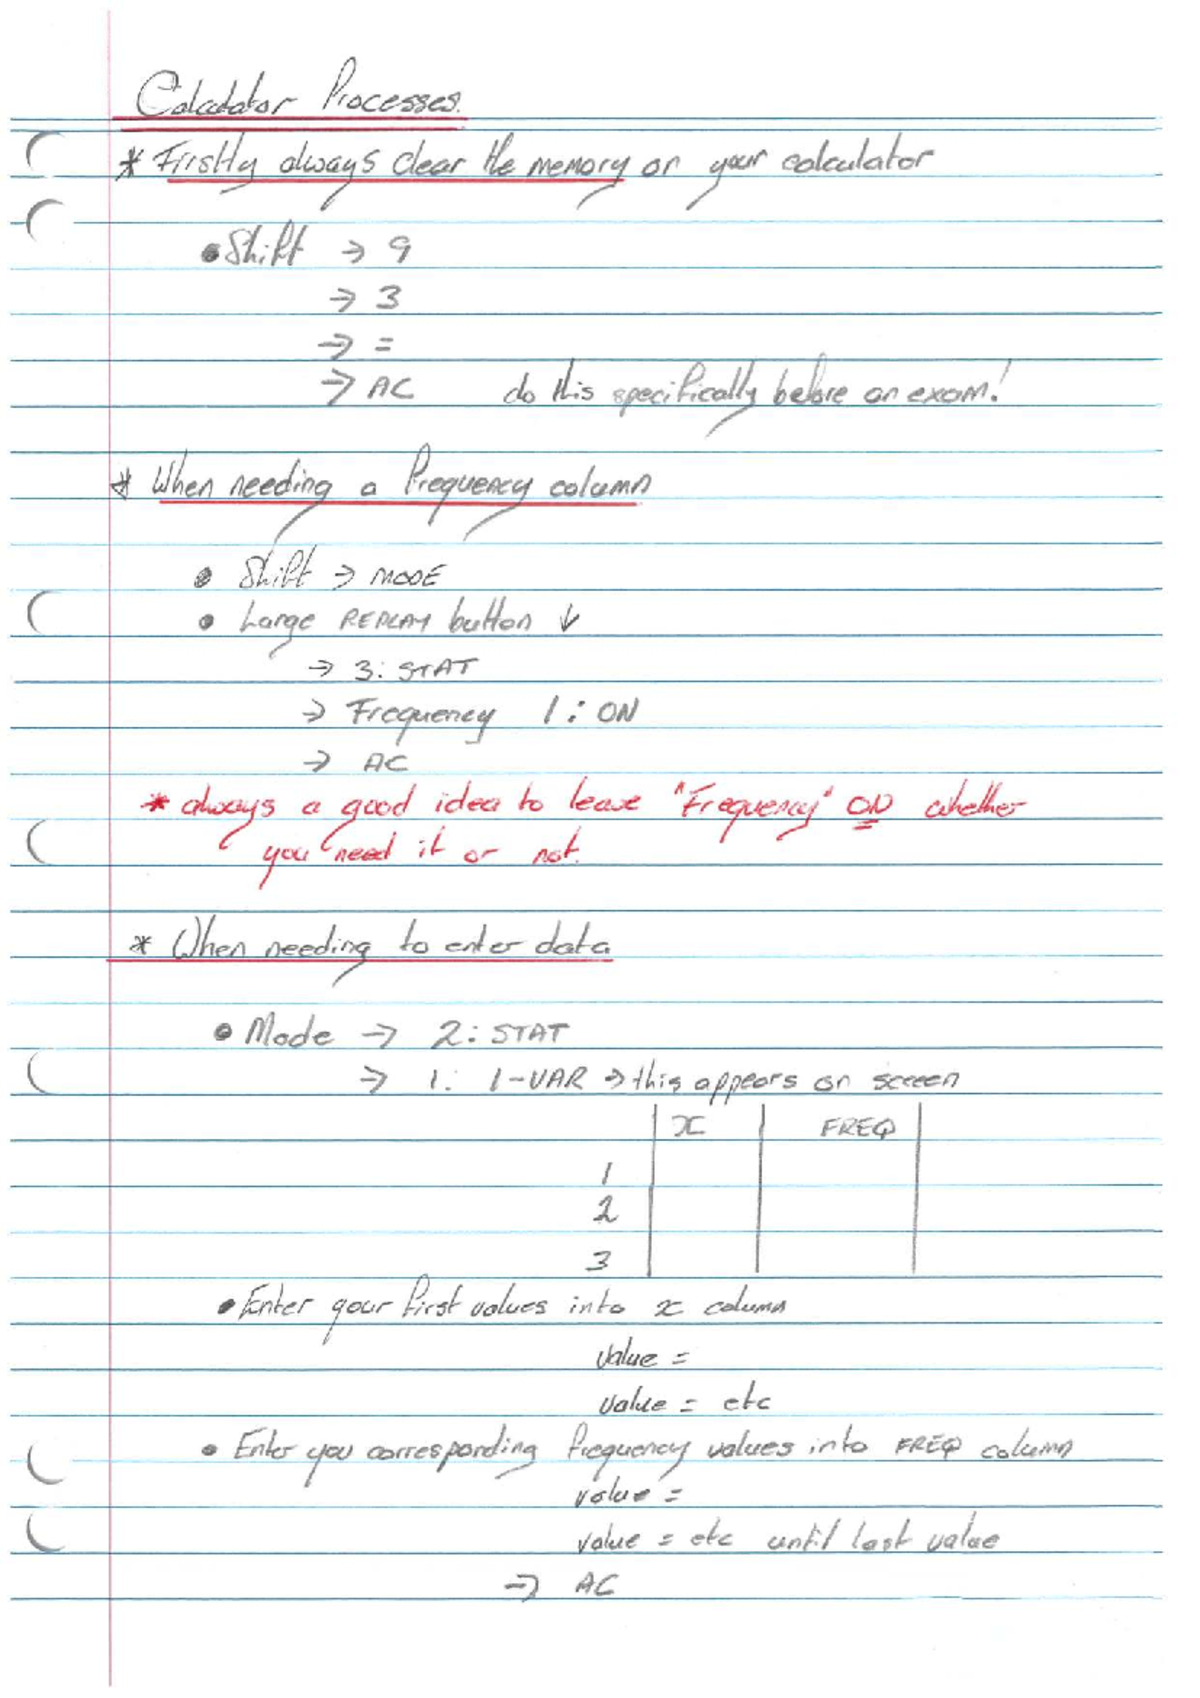 Calculator Processes.
* Firstly always clear the memory on your calculator
• Shift → 9
→ 3
→ =
→ AC do this specifically before an exam!
* When needing a frequency column
• Shift → MODE
• Large REPLAY button ↓
→ 3: STAT
→ Frequency 1: ON
→ AC
* always a good idea to leave "Frequency" ON whether
you need it or not.
* When needing to enter data
• Mode → 2: STAT
→ 1: 1-VAR → this appears on screen
x FREQ
1
2
3
• Enter your first values into x column
value =
value = etc
• Enter you corresponding frequency values into FREQ column
value =
value = etc until last value
→ AC